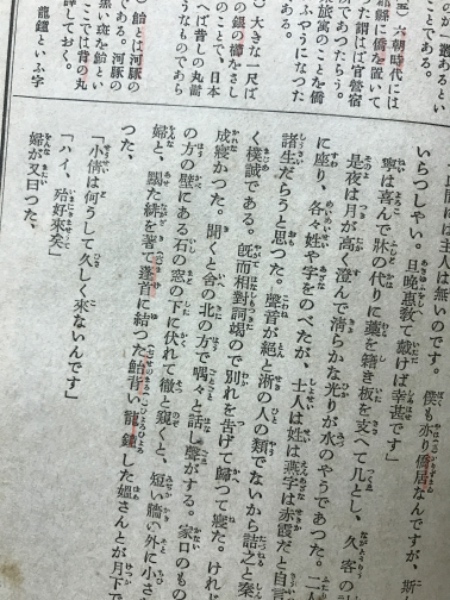 のが一應あるとい
ことである。
六朝時代には
郡縣に僑を置いて
た謂はば官營宿
所であつたらう。
旅寓のことを僑
ふやうになつた
ある。
) 大きな一尺ば
の銀の櫛をさし
のことで、日本
へば昔の丸髷
うなものであら
) 鮐とは河豚の
である。河豚の
黒い斑を鮐とい
ここでは背の丸
評しておく。
龍鐘といふ字
間には主人は無いのです。 僕も亦り僑居なんですが、斯
いらつしやい。旦晩惠教て戴けば幸甚です」
寧は喜んで牀の代りに藁を籍き板を支へて几とし、久客の
是夜は月が高く澄んで淸らかな光りが水のやうであつた。二人
に座り、各々姓や字をのべたが、士人は姓は燕字は赤霞だと自
諸生だらうと思つた。聲音が絶と浙の人の類でないから詰之と秦
く樸誠である。旣而相對詞竭ので別れを告げて歸つて寢た。けれど
成寢かつた。聞くと舍の北の方で喁々と話し聲がする。家口のもの
の方の壁にある石の窓の下に伏れて徹と窺くと、短い牆の外に小さ
婦と、た緋を著て蓬首に結つた鮐背い龍鐘した媼さんとが月下で
つた、
「小倩は何うして久しく來ないんです」
「ハイ、殆好來矣」
婦が又曰つた、